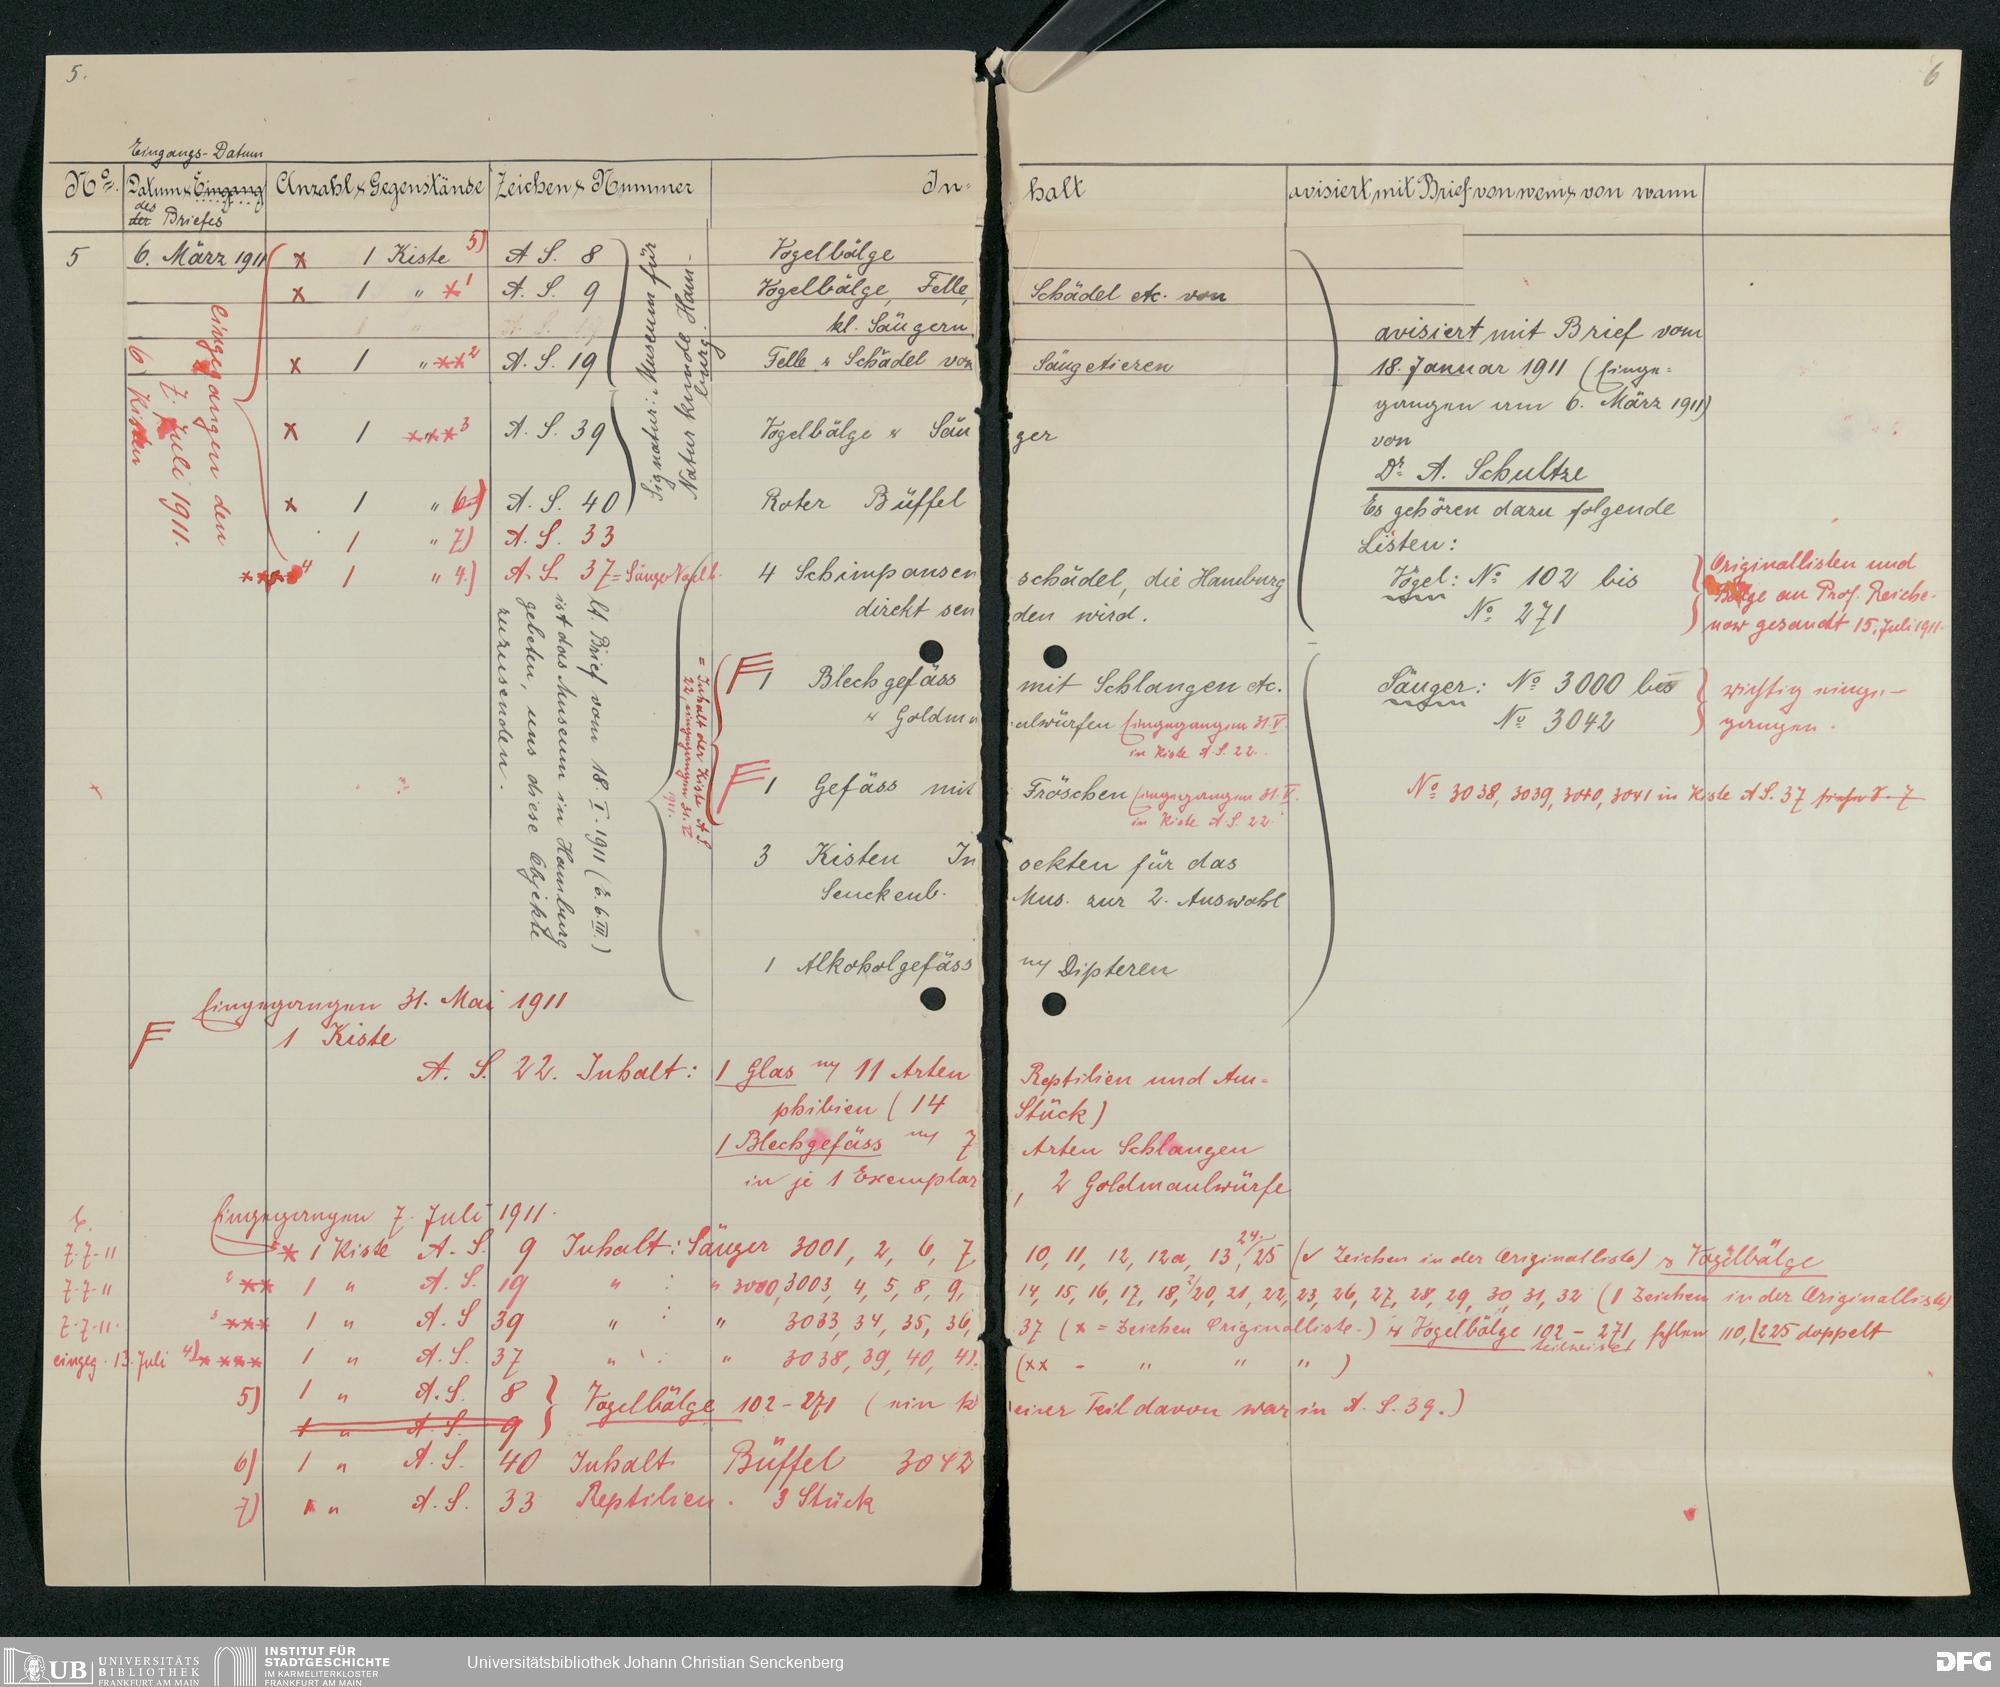 5.
6
Eingangs-Datum
No. Datum & Eingang Anzahl & Gegenstände Zeichen & Nummer In- halt avisiert mit Brief von wem & von wann
des
der Briefes
5 6. März 1911 x 1 Kiste 5) A. S. 8 Vogelbälge
x 1 " x 1 A. S. 9 Vogelbälge, Felle, Schädel etc. von
kl. Säugern
x 1 " xx 2 A. S. 19 Felle & Schädel von Säugetieren
x 1 " xxx 3 A. S. 39 Vogelbälge & Säuger
x 1 " 6) A. S. 40 Roter Büffel
1 " 7) A. S. 33
xxxx 4 1 " 4.) A. S. 37 = Säuger Vogelb. 4 Schimpansenschädel, die Hamburg
direkt senden wird.
Eingegangen den
7. Juli 1911.
6 Kisten
Signatur: Museum für
Naturkunde Ham-
burg.
lt. Brief vom 18. I. 1911 (E. 6. III.)
ist das Museum in Hamburg
gebeten, uns diese Objekte
zuzusenden.
= Inhalt der Kiste A. S.
22, eingegangen 31. V.
1911.
F 1 Blechgefäss mit Schlangen etc.
& Goldmaulwürfen Eingegangen 31. V.
in Kiste A. S. 22.
F 1 Gefäss mit Fröschen Eingegangen 31. V.
in Kiste A. S. 22.
3 Kisten Insekten für das
Senckenb. Mus. zur 2. Auswahl
1 Alkoholgefäss m/ Dipteren
avisiert mit Brief vom
18. Januar 1911 (Einge-
gangen am 6. März 1911)
von
Dr. A. Schultze
Es gehören dazu folgende
Listen:
Vögel: No 102 bis
No 271
Originallisten und
Bälge an Prof. Reiche-
now gesandt 15. Juli 1911.
Säuger: No 3000 bis
No 3042
richtig einge-
gangen.
No 3038, 3039, 3040, 3041 in Kiste A. S. 37
Eingegangen 31. Mai 1911
F 1 Kiste
A. S. 22. Inhalt: 1 Glas m/ 11 Arten Reptilien und Am-
phibien (14 Stück)
1 Blechgefäss m/ 7 Arten Schlangen
in je 1 Exemplar, 2 Goldmaulwürfe
Eingegangen 7. Juli 1911.
7-7-11 x 1 Kiste A. S. 9 Inhalt: Säuger 3001, 2, 6, 7, 10, 11, 12, 12a, 13, 24, 25 (✓ Zeichen in der Originalliste) & Vogelbälge
7-7-11 2 xx 1 " A. S. 19 " : " 3000, 3003, 4, 5, 8, 9, 14, 15, 16, 17, 18, 20, 21, 22, 23, 26, 27, 28, 29, 30, 31, 32 (1 Zeichen in der Originalliste)
7-7-11. 3 xxx 1 " A. S 39 " : " 3033, 34, 35, 36, 37 (x = Zeichen Originalliste.) & Vogelbälge 102 - 271, fehlen 110, 225 doppelt
teilweise
eingeg. 13. Juli 4) xxxx 1 " A. S. 37 " : " 3038, 39, 40, 41. (xx - " " " )
5) 1 " A. S. 8 Vogelbälge 102 - 271 (ein kleiner Teil davon war in A. S. 39.)
1 " A. S. 9
6) 1 " A. S. 40 Inhalt Büffel 3042
7) 1 " A. S. 33 Reptilien. 3 Stück
UB UNIVERSITÄTS
BIBLIOTHEK
FRANKFURT AM MAIN
INSTITUT FÜR
STADTGESCHICHTE
IM KARMELITERKLOSTER
FRANKFURT AM MAIN
Universitätsbibliothek Johann Christian Senckenberg
DFG